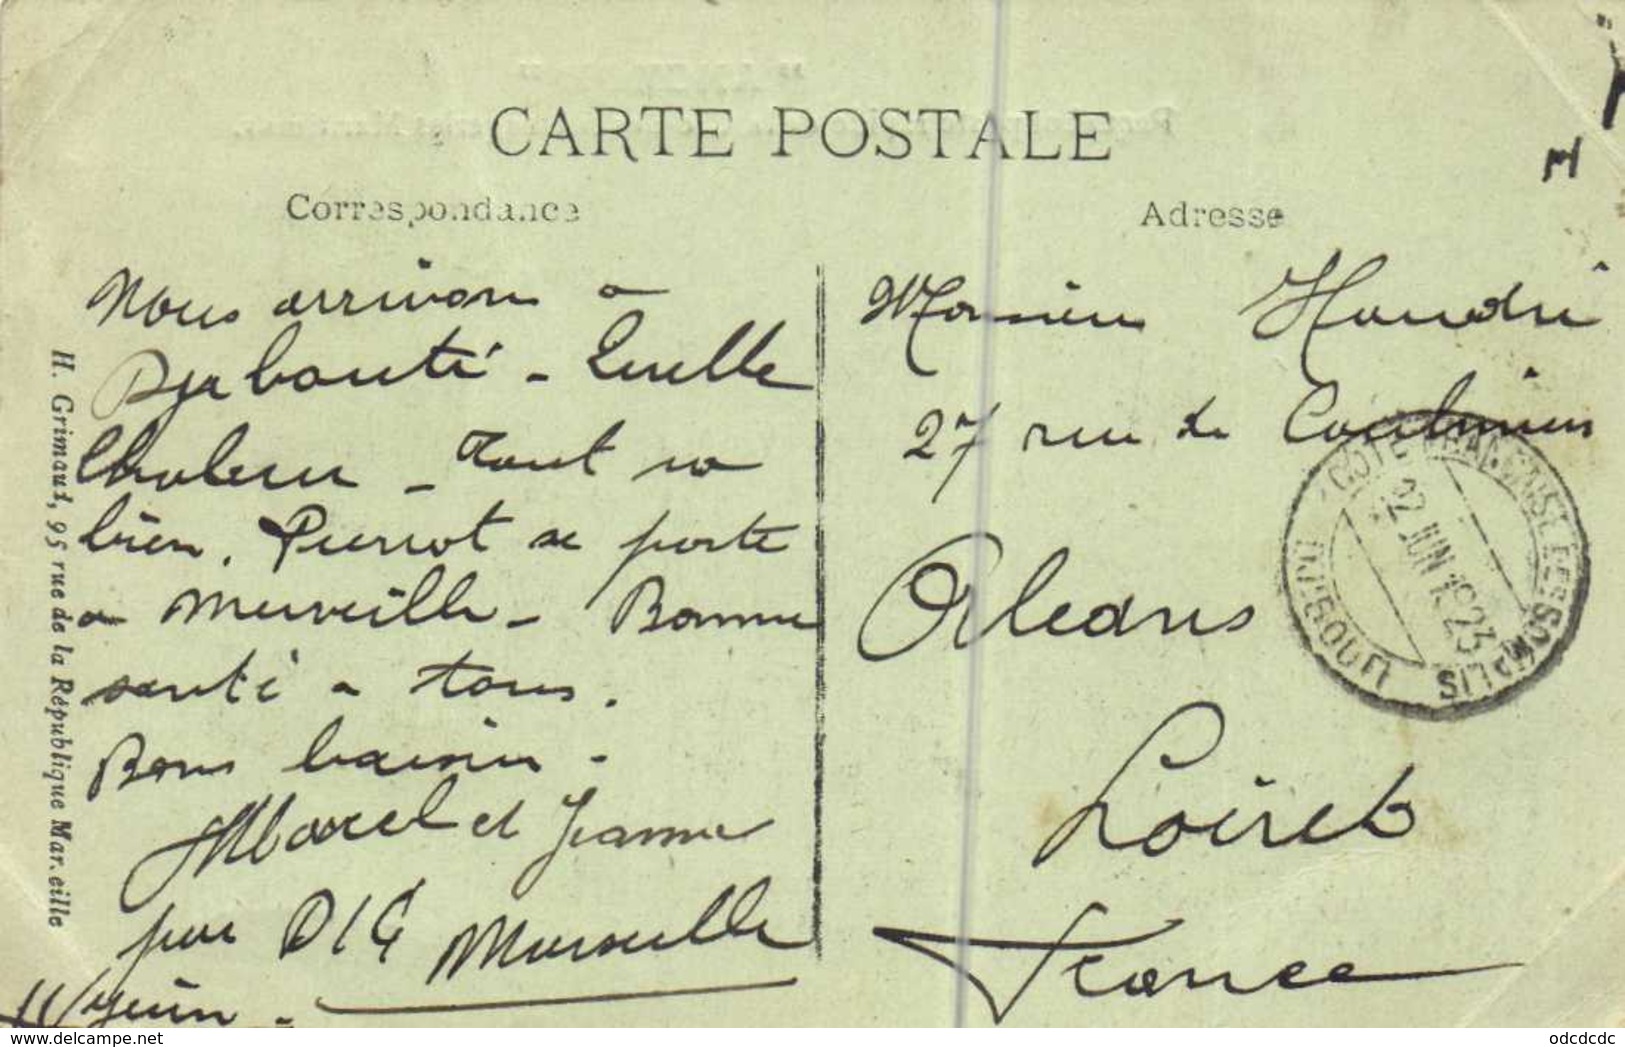 CARTE POSTALE
Correspondance
Adresse
Nous arrivons a
Djibouti - Quelle
Chaleur - Tout va
bien. Pierrot se porte
a merveille - Bonne
santé a tous.
Bons baisers -
Marcel et Jeanne
par D/G Marseille
juin -
H. Grimaud, 95 rue de la République Marseille
Monsieur Houdri
27 rue de Coulmiers
Orleans
Loiret
France
COTE FRANÇAISE DES SOMALIS
22 JUIN 1923
DJIBOUTI
delcampe.net
odcdcdc